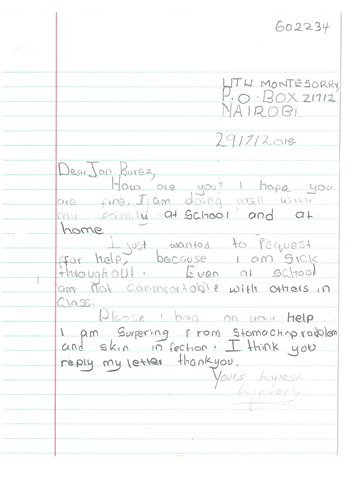 602234
UTU MONTESORRY,
P.O. BOX 21712
NAIROBI
29/7/2018
Dear Jan Burez,
How are you? I hope you
are fine, I am doing well with
my family at school and at
home
I just wanted to request
for help, because I am sick
throughout. Even at school
am not commfortable with others in
class.
Please I beg on your help
I am surfering from stomach-problem
and skin infection. I think you
reply my letter thankyou.
Yours honest